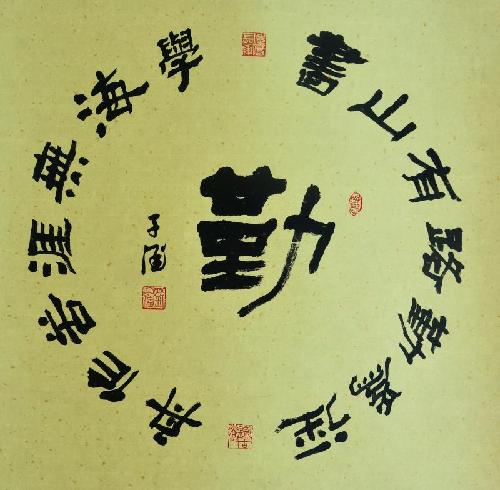 書山有路勤爲徑
學海無涯苦作舟
勤
子